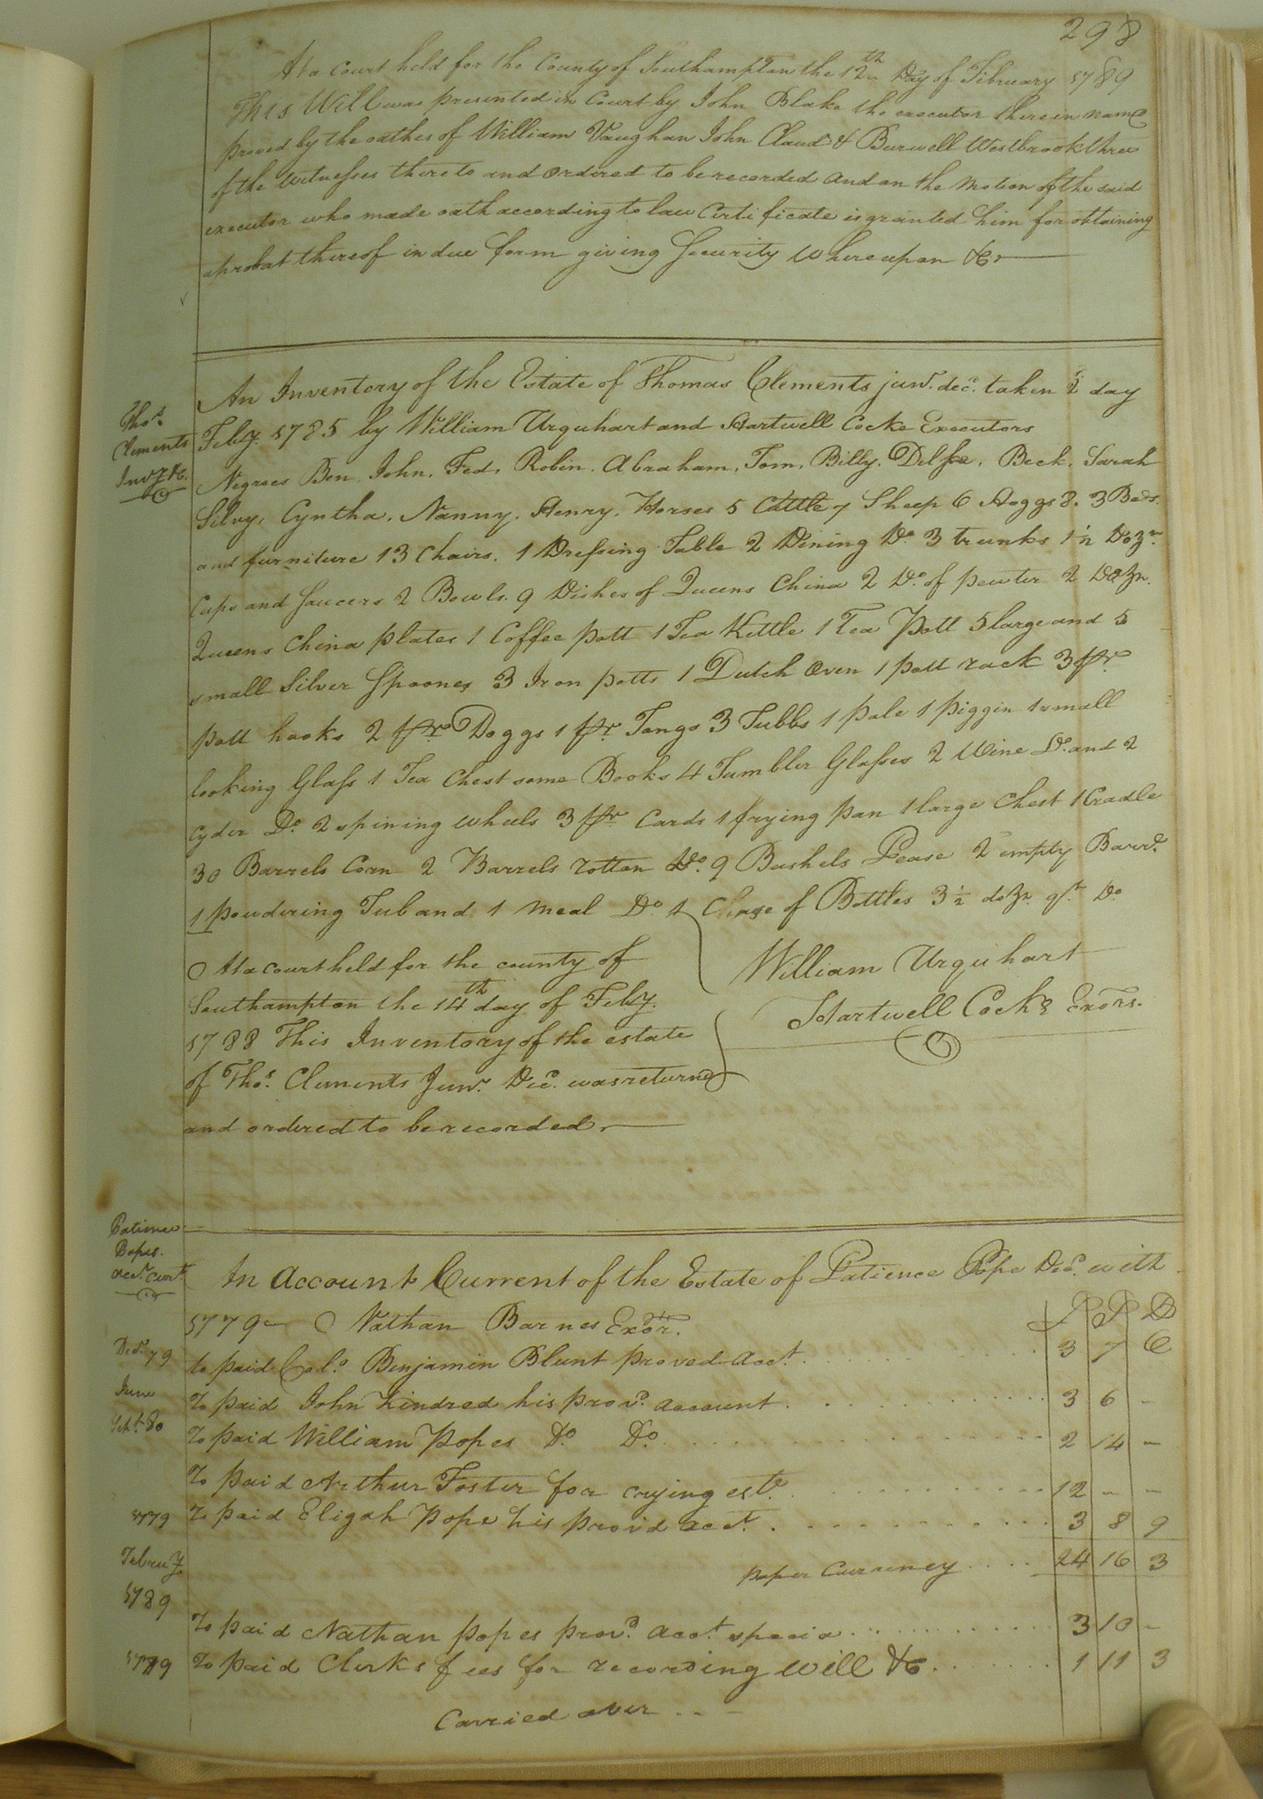 298
At a Court held for the County of Southampton the 12th Day of February 1789
This Will was presented in Court by John Blake the executor therein named
proved by the oathes of William Vaughan John Claud & Burwell Westbrook three
of the Witnesses thereto and ordered to be recorded and on the Motion of the said
executor who made oath according to law Certificate is granted him for obtaining
a probat thereof in due form giving Security Whereupon &c
Thos. Clements Invy. &c.
An Inventory of the Estate of Thomas Clements junr. decd. taken day
Feby. 1785 by William Urquhart and Hartwell Cocke Executors
Negroes Ben. John. Fed. Robin. Abraham. Tom. Billy. Beck. Sarah
Silvy. Cyntha. Nanny. Henry. Horses 5 Cattle 7 Sheep 6 Hoggs 8. 3 Beds.
and furniture 13 Chairs. 1 Dressing Table 2 Dining Do. 3 trunks 1½ Dozn.
Cups and Saucers 2 Bowls. 9 Dishes of Queens China 2 Do. of pewter 2 Dozn.
Queens China plates 1 Coffee pott 1 Tea Kettle 1 Tea Pott 5 large and 5
small Silver Spoones 3 Iron potts 1 Dutch Oven 1 pott rack 3 pr.
pott hooks 2 pr. Doggs 1 pr. Tongs 3 Tubbs 1 pale 1 piggin 1 small
looking Glass 1 Tea Chest some Books 4 Tumbler Glasses 2 Wine Do. and 2
Cyder Do. 2 spining wheels 3 pr. Cards 1 frying pan 1 large Chest 1 Cradle
30 Barrels Corn 2 Barrels rotten Do. 9 Bushels Pease 2 empty Barrs.
1 powdering Tub and 1 meal Do. 1 Case of Bottles 3½ dozn. qt. Do
William Urquhart
Hartwell Cocke Exors.
At a court held for the county of
Southampton the 14th day of Feby.
1788 This Inventory of the estate
of Thos. Clements Junr. Decd. was returned
and ordered to be recorded.
Patience Popes. acct. Curt.
In Account Current of the Estate of Patience Pope Decd. with
1779 Nathan Barnes Exor. £ S D
Decr. 79 to paid Colo. Benjamin Blunt proved acct. 3 7 6
June To paid John Kindred his provd. account 3 6 -
80 To paid William Popes Do. Do. 2 14 -
To paid Arthur Foster for crying este. 12 - -
1779 To paid Eligah Pope his provd acct. 3 8 9
paper Currency 24 16 3
Februy. 1789 To paid Nathan popes provd. acct. specia 3 10 -
1779 To paid Clerks fees for recording will &c. 1 11 3
Carried over